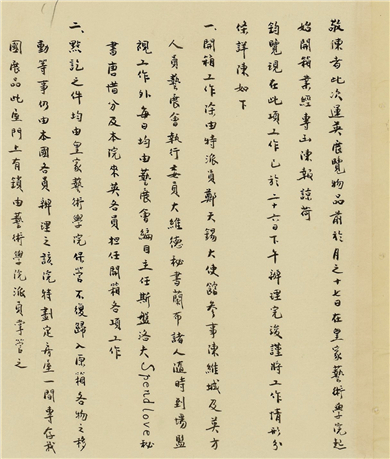 敬陳者此次運英展覽物品前於月之十七日在皇家藝術學院起
始開箱業經專函陳報諒荷
鈞覽現在此項工作已於二十六日下午辦理完竣謹將工作情形分
條詳陳如下
一、開箱工作除由特派員鄭天錫大使館參事陳維城及英方
人員藝展會執行委員大維德秘書蘭布諸人隨時到場監
視工作外每日均由藝展會編目主任斯盤洛夫Spendlove秘
書唐惜分及本院來英各員担任開箱各項工作
二、點訖之件均由皇家藝術學院保管不復歸入原箱各物之移
動等事仍由本國各員辦理之該院特劃定房屋一間專存我
國展品此屋門上有鎖由藝術學院派員掌管之